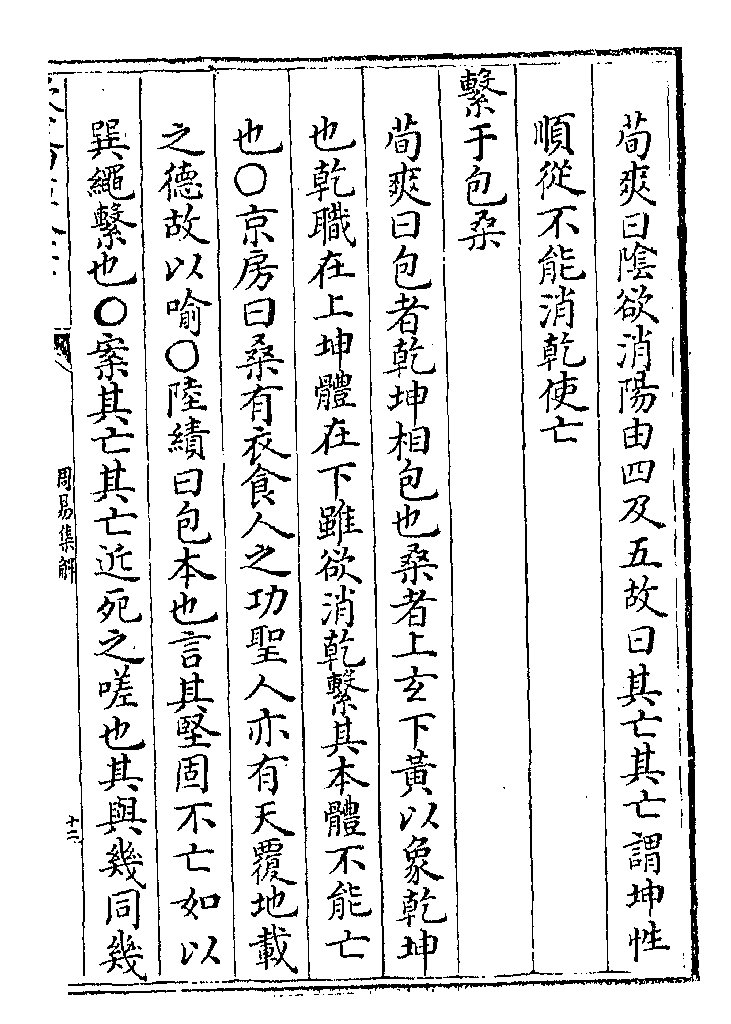 荀爽曰陰欲消陽由四及五故曰其亡其亡謂坤性
順從不能消乾使亡
繫于包桑
荀爽曰包者乾坤相包也桑者上玄下黃以象乾坤
也乾職在上坤體在下雖欲消乾繫其本體不能亡
也○京房曰桑有衣食人之功聖人亦有天覆地載
之德故以喻○陸績曰包本也言其堅固不亡如以
巽繩繫也○案其亡其亡近死之嗟也其與幾同幾
周易集解
十二